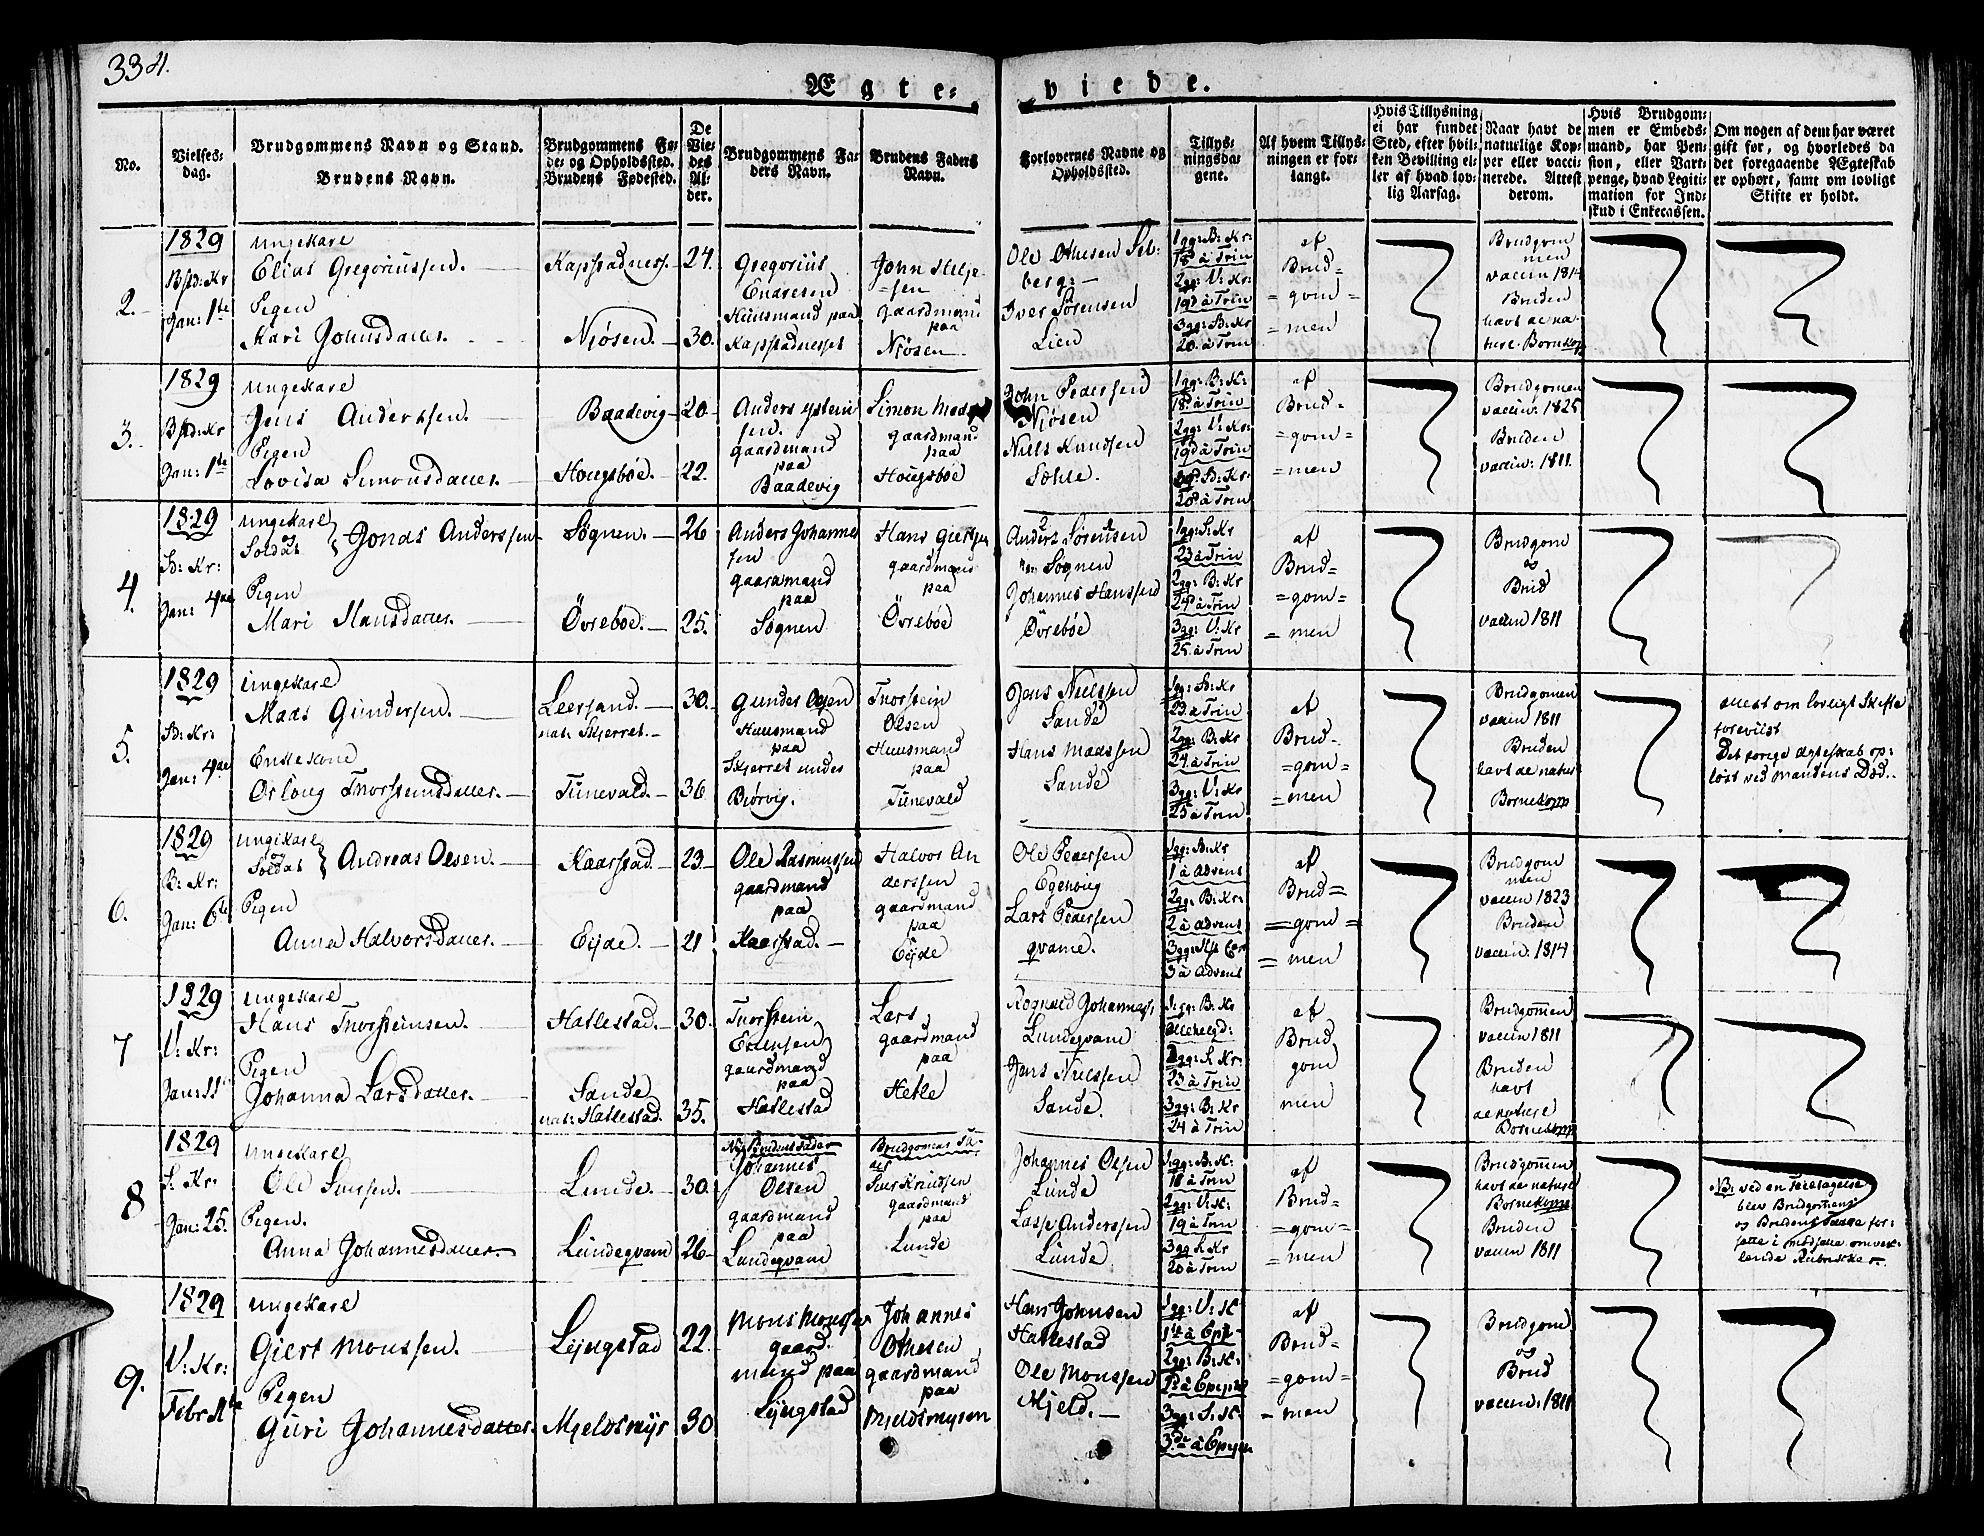 334.
Ægte-
viede.
No.
Vielses-
dag.
Brudgommens Navn og Stand.
Brudens Navn.
Brudgommens Fø-
de- og Opholdssted.
Brudens Fødested.
De
Vie-
des
Al-
der.
Brudgommens Fa-
ders Navn.
Brudens Faders
Navn.
Forlovernes Navne og
Opholdssted.
Tillys-
ningsda-
gene.
Af hvem Tillys-
ningen er for-
langt.
Hvis Tillysning
ei har fundet
Sted, efter hvil-
ken Bevilling el-
ler af hvad lov-
lig Aarsag.
Naar havt de
naturlige Kop-
per eller vacci-
nerede. Attest
derom.
Hvis Brudgom-
men er Embeds-
mand, har Pen-
sion, eller Vart-
penge, hvad Legiti-
mation for Ind-
skud i Enkecassen.
Om nogen af dem har været
gift før, og hvorledes da
det foregaaende Ægteskab
er ophørt, samt om lovligt
Skifte er holdt.
2.
1829
Jan: 1ste
Ungekarl
Elias Gregoriussen.
Pigen
Kari Johnsdatter.
Kapstadness.
Njøsen.
24.
30.
Gregorius
Endresen
Huusmand paa
Kapstadnesset
John
gaardmand
paa
Njøsen
Ole Othesen Sol-
berg.
Iver Sørensen
Lien
1gg: B: Kr:
18 à Trin
2gg: V: Kr:
19 à Trin
3gg: B: Kr
20. à Trin
af
Brud=
=gom=
=men
Brudgom
men
vaccin 1814
Bruden
havt de na-
turl. Bornekop
3.
1829
Jan: 1ste
Ungekarl
Jens Anderssen.
Pigen
Lovisa Simonsdatter.
Baadevig
Hougsbøe.
20
22.
Anders
sen.
gaardmand
paa
Baadevig
Simon Mads
gaardmand
paa
Hougsbøe
John Pederssen
Njøsen
Niels Knudsen
Sæhle.
1gg: B: K:
18 à Trin
2gg: V: Kr:
19 à Trin
B: Kr.
20 à Trin
af
Brud=
=gom=
=men
Brudgomen
vaccin: 1825
Bruden
vaccin: 1811.
4.
1829
Jan: 4de
Ungekarl
og
Soldat
Jonas Anderssen
Pigen
Mari Hansdatter.
Sognen.
Övrebøe.
26
25.
Anders Johannes
sen
gaardmand
paa
Sognen
Hans
gaardmand
paa
Övrebøe
Anders Sørensen
Sognen
Johannes Hanssen
Övrebøe
1gg: S: Kr
23 à Trin
2gg: B: Kr
24 à Trin
3gg: V: Kr
25. à Trin
af
Brud=
=gom=
=men
Brudgom
og
Brud
vaccin 1811
5.
1829
Jan: 4de
Ungekarl
Mads Gundersen.
Enkekone
Orloug Thorsteinsdatter.
Leersand.
nat: Skjerret.
Tunevald.
30.
36
Gunder Olsen
Huusmand
paa
Skjerret under
Biørvig.
Thorstein
Olsen
Huusmand
paa
Tunevald
Jens Nielssen
Sande
Hans Madssen
Sande
1gg: B: Kr
23. à Trin
2gg: B: Kr
24. à Trin
3gg: V: Kr
25 à Trin
af
Brud-
=gom=
=men
Brudgomen
vaccin 1811
Bruden
havt de natur
Bornekopp
attest om lovligt Skifte
foreviist
Det forige ægteskab op-
løst ved mandens Død.
6.
1829
B: Kr:
Jan: 6te
Ungekarl
og
Soldat
Andreas Olsen.
Pigen
Anna Halvorsdatter.
Kaarstad.
Eyde.
23
21
Ole Rasmussen
gaardmand
paa
Kaarstad.
Halvor An
derssen
gaardmand
paa
Eyde
Ole Pedersen
Lars Pedersen
qvame.
1gg: B: Kr
1 à Advent
2gg: B: Kr:
2 à Advent
3 à Advent
af
Brud=
=gom=
=men
Brudgom
men
vaccin 1823
Bruden
vaccin: 1814
7
1829
V: Kr:
Jan: 11
Ungekarl
Hans Thorsteinsen.
Pigen
Johanna Larsdatter.
Hatlestad.
Sande
nat: Hatlestad.
30.
35.
Thorstein
gaardmand
paa
Hatlestad
Lars
gaardmand
paa
Hetle
Rognald Johannes,
Lundeqvam
Jens Nielssen
Sande.
1gg: B: Kr
Allehelgd:
2gg: S. Kr:
23 à Trin
3gg: B: Kr
24 à Trin
af
Brud
gom
men
Brudgomen
vaccin 1811
Bruden
havt
de naturl
Bornekopp
8
1829
S: Kr.
Jan: 25.
Ungekarl
Ole
Pigen.
Anna Johannesdatter
Lunde.
Lundeqvam
30.
26
Johannes
Olsen
gaardmand
paa
Lundeqvam
Brudgomens Fa-
der
gaardmand
paa
Lunde
Johannes Olsen
Lunde
Lasse Anderssen
Lunde
1gg: B: K:
18 à Trin
2gg: V: K:
19 à Trin
3gg
20 à Trin
af
Brud=
=gom=
=men
Brudgomen
havt de naturl
Bornekopp
Bruden
vaccin 1811
NB: ved en Feiltagelse
blev Brudgomens
og Brudens Fædre for-
satte i modsatte omvex-
lende Rubrikker
9.
1829
V: Kr:
Febr: 1ste
Ungekarl
Giert Monssen.
Pigen
Guri Johannesdatter.
Lyngstad
Mjeldsmyr
22.
30
Mons Monssen
gaard-
mand paa
Lyngstad
Johannes
Othesen
gaardmand
paa
Mjeldsmyren
Hans Johnsen
Hatlestad
Ole Monssen
Mjeld.
1gg: V: K:
1ste à Epi-
2gg: B: K:
3gg: S: K:
3die à Epip
af
Brud=
=gom=
=men
Brudgom
og
Brud
vaccin: 1811